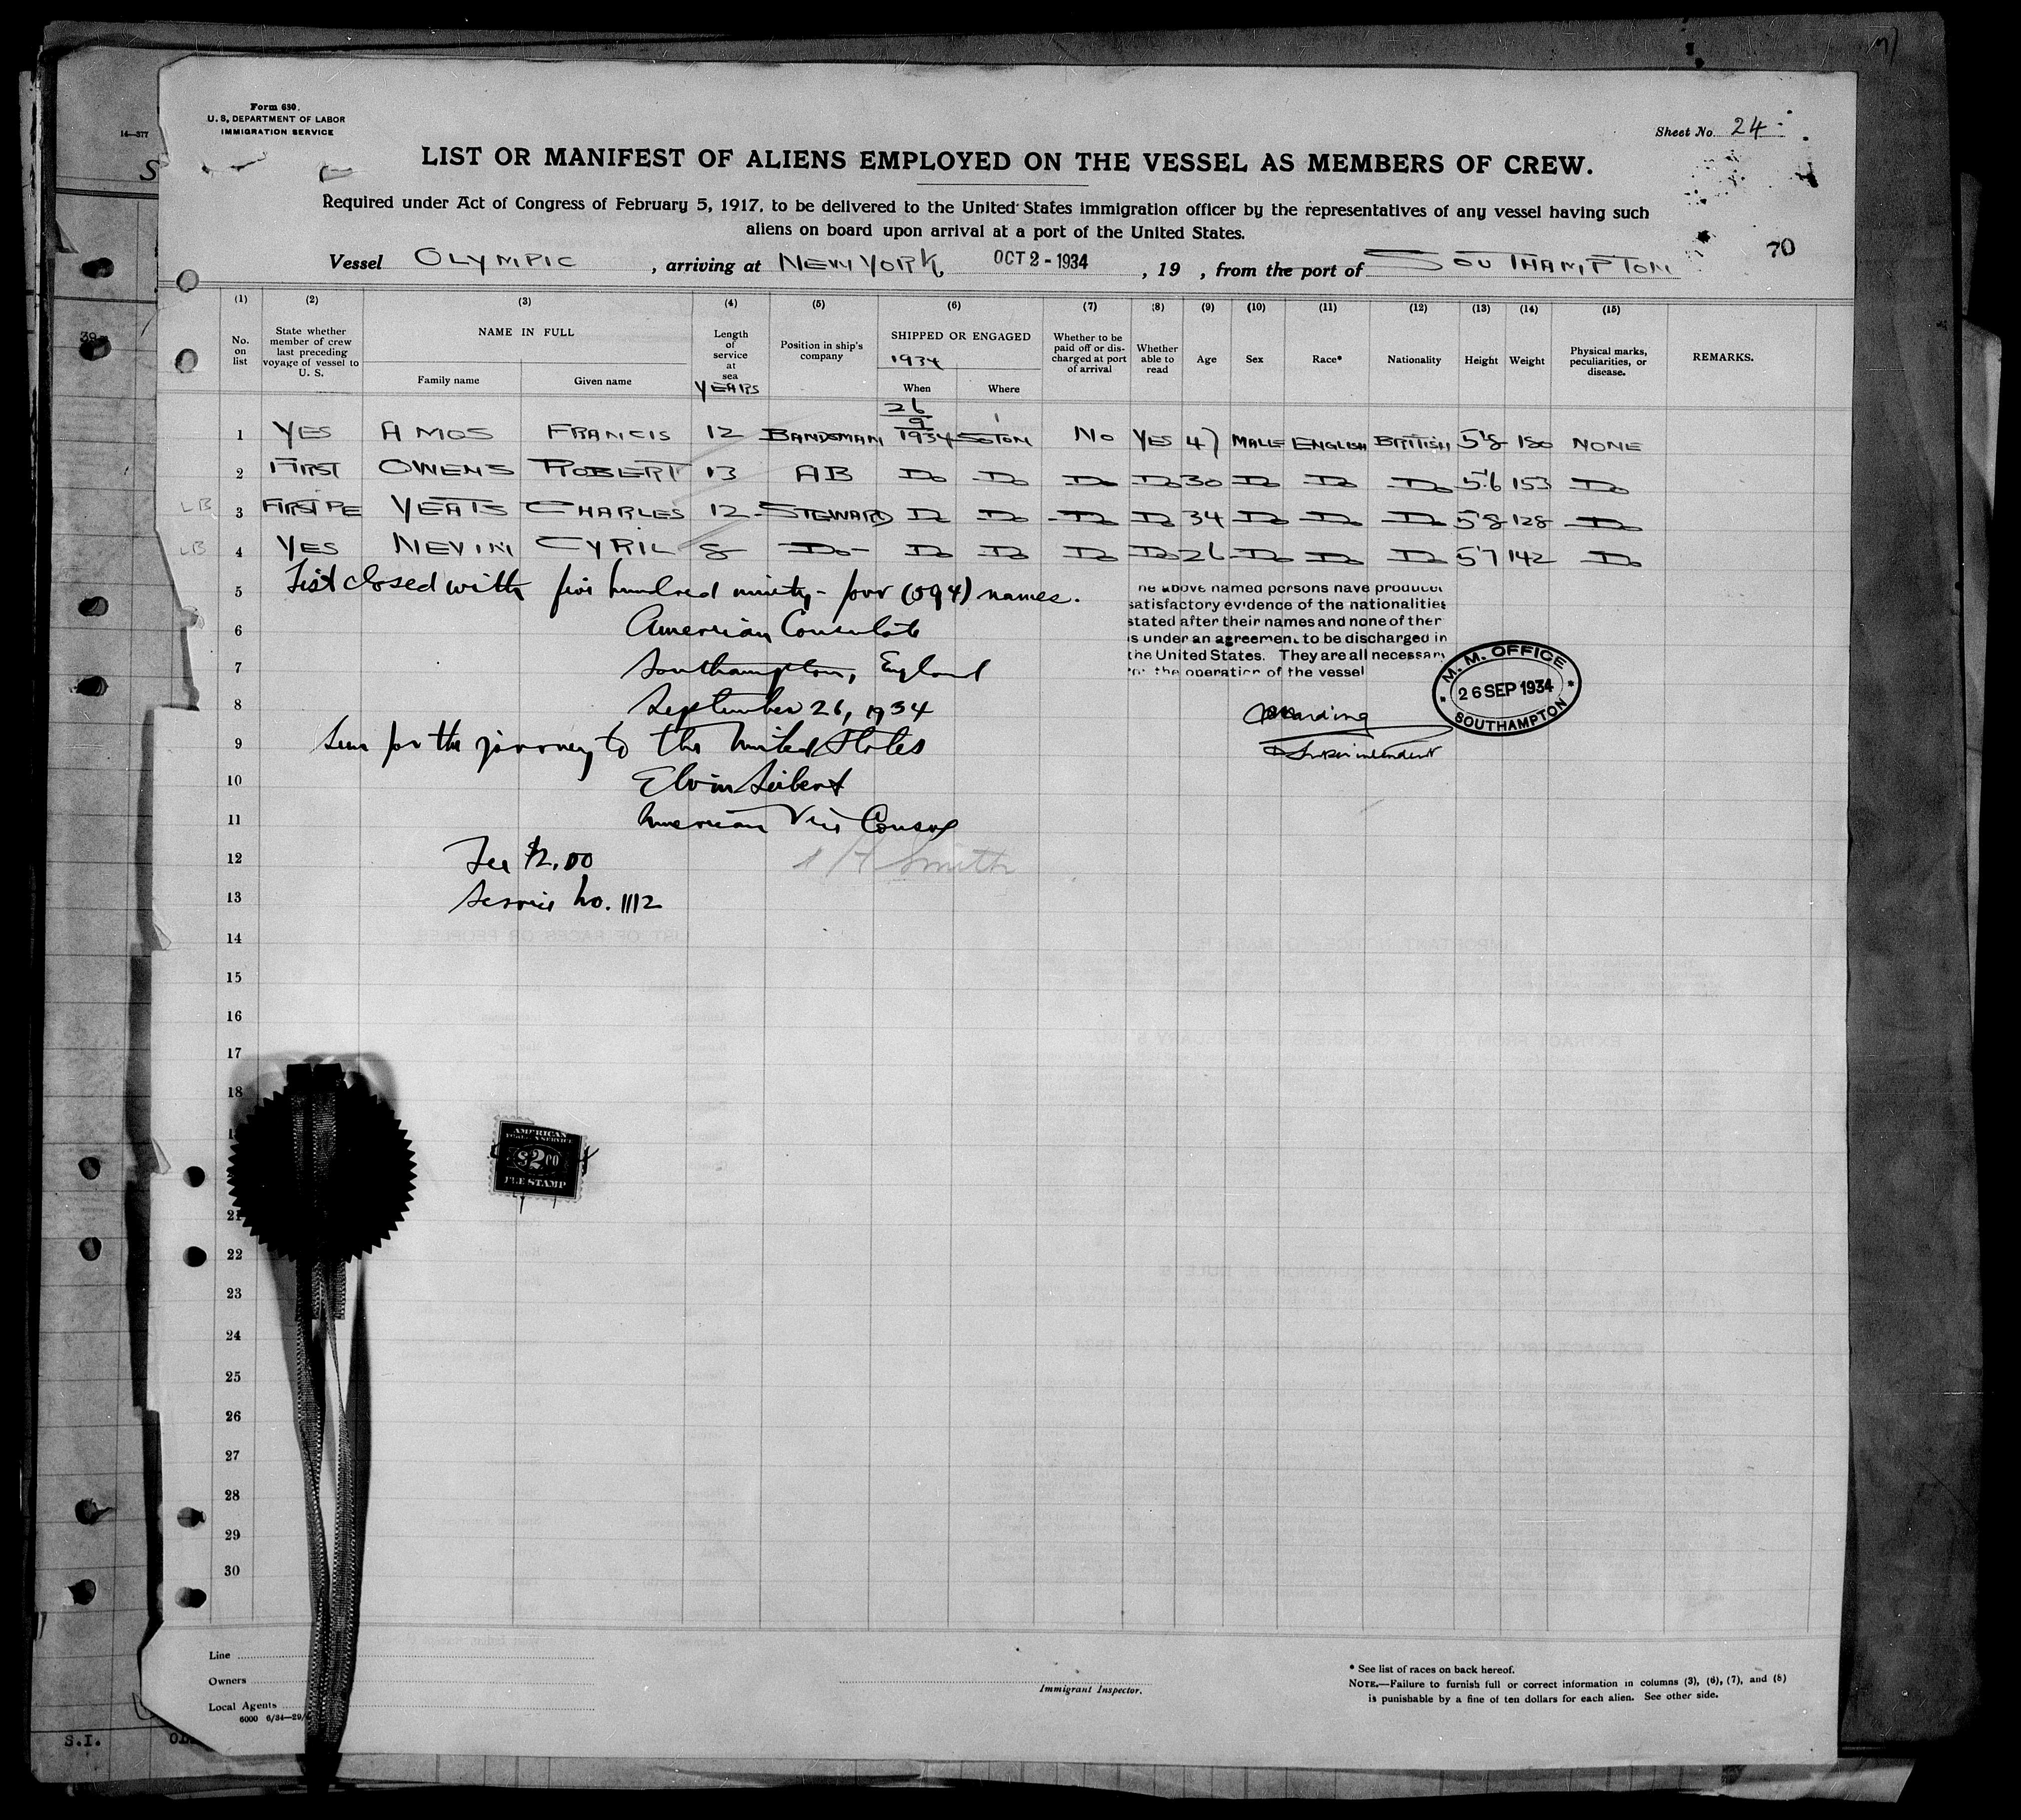 Form 680.
U. S. DEPARTMENT OF LABOR
IMMIGRATION SERVICE
14—377
Sheet No. 24
LIST OR MANIFEST OF ALIENS EMPLOYED ON THE VESSEL AS MEMBERS OF CREW.
Required under Act of Congress of February 5, 1917, to be delivered to the United States immigration officer by the representatives of any vessel having such
aliens on board upon arrival at a port of the United States.
70
Vessel OLYMPIC, arriving at NEW YORK OCT 2 - 1934, 19 , from the port of SOUTHAMPTON
(1) (2) (3) (4) (5) (6) (7) (8) (9) (10) (11) (12) (13) (14) (15)
No. on list
State whether member of crew last preceding voyage of vessel to U. S.
NAME IN FULL
Family name
Given name
Length of service at sea YEARS
Position in ship's company
SHIPPED OR ENGAGED
1934
When
Where
Whether to be paid off or discharged at port of arrival
Whether able to read
Age
Sex
Race*
Nationality
Height
Weight
Physical marks, peculiarities, or disease.
REMARKS.
1 YES AMOS FRANCIS 12 BANDSMAN 26/9 1934 SOTON NO YES 47 MALE ENGLISH BRITISH 5'8 180 NONE
2 FIRST OWENS ROBERT 13 AB Do Do Do Do 30 Do Do Do 5'6 153 Do
LB 3 FIRST PE YEATS CHARLES 12 STEWARD Do Do Do Do 34 Do Do Do 5'8 128 Do
LB 4 YES NEVIN CYRIL 8 Do Do Do Do Do 26 Do Do Do 5'7 142 Do
5 List closed with five hundred ninety-four (594) names.
6 American Consulate
7 Southampton, England
8 September 26, 1934
9 Seen for the journey to the United States
10 Elvin Seibert
11 American Vice Consul
12 Fee $2.00
H Smith
13 Service No. 1112
he above named persons have produced
satisfactory evidence of the nationalities
stated after their names and none of ther
is under an agreement to be discharged in
the United States. They are all necessary
for the operation of the vessel
M. M. OFFICE
26 SEP 1934
SOUTHAMPTON
Harding
Superintendent
14
15
16
17
18
AMERICAN
FOREIGN SERVICE
$2.00
FEE STAMP
21
22
23
24
25
26
27
28
29
30
Line
Owners
Local Agents
6000 6/34—29/
Immigrant Inspector.
* See list of races on back hereof.
NOTE.—Failure to furnish full or correct information in columns (3), (6), (7), and (8)
is punishable by a fine of ten dollars for each alien. See other side.
S.I.